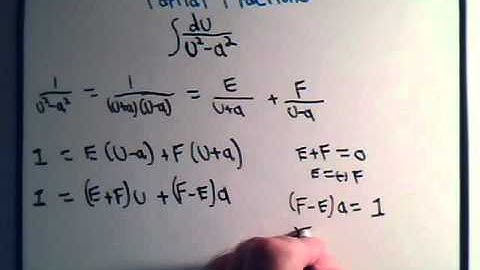 Partial Fractions
∫ du/(u²-a²)
1/(u²-a²) = 1/((u+a)(u-a)) = E/(u+a) + F/(u-a)
1 = E(u-a) + F(u+a)
E+F = 0
E = (-)F
1 = (E+F)u + (F-E)a
(F-E)a = 1